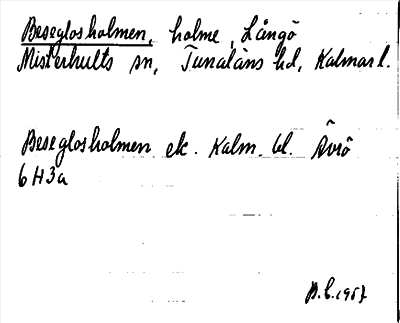 Beseglosholmen, holme, Långö
Misterhults sn, Tunaläns hd, Kalmar l.
Beseglosholmen ek. Kalm. bl. Ävrö
6 H3a